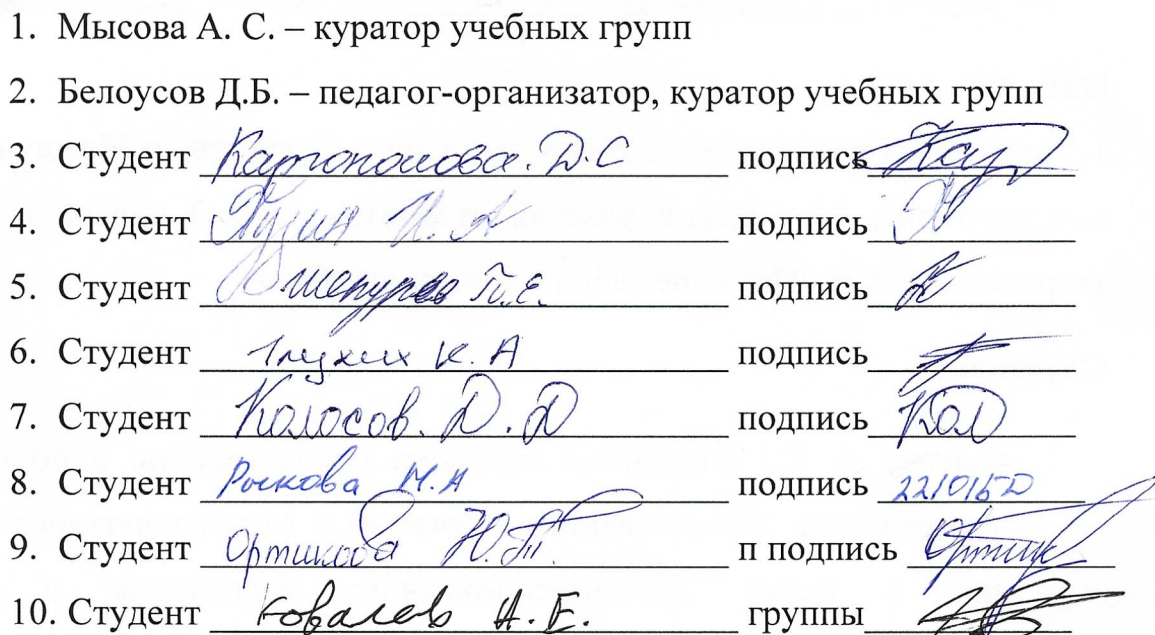 1. Мысова А. С. – куратор учебных групп
2. Белоусов Д.Б. – педагог-организатор, куратор учебных групп
3. Студент Картополова. Д.С подпись
4. Студент И. А подпись
5. Студент подпись
6. Студент Глухих К. А подпись
7. Студент Колосов. Д. Д подпись Кол
8. Студент Рыкова М.А подпись 221015D
9. Студент Ортикова Ю. п подпись Ортик
10. Студент Ковалев А. Е. группы